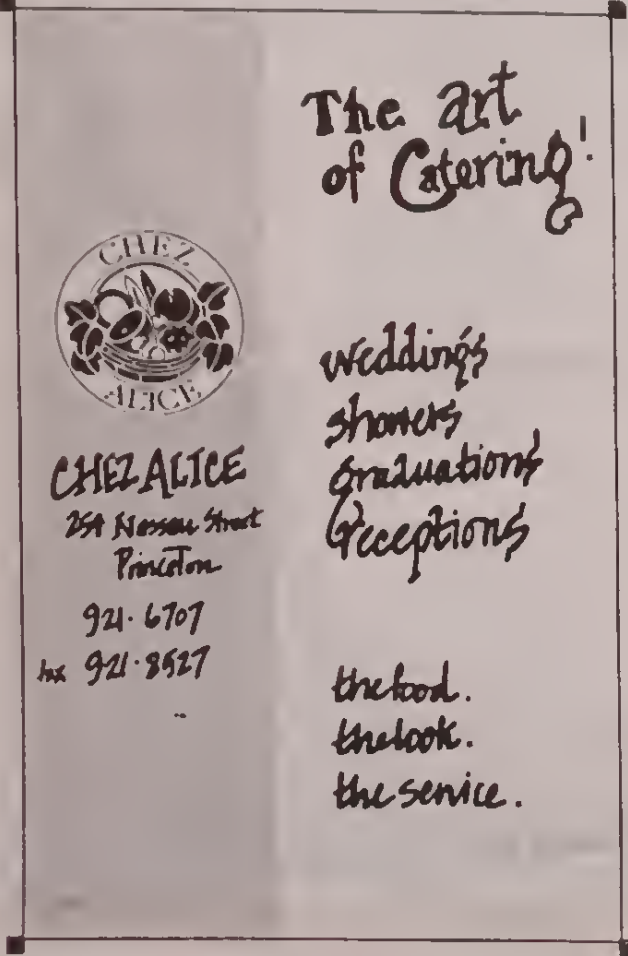 The art
of Catering!
CHEZ
ALICE
CHEZ ALICE
254 Nassau Street
Princeton
921·6707
fax 921·8527
weddings
showers
graduations
receptions
the food.
the look.
the service.